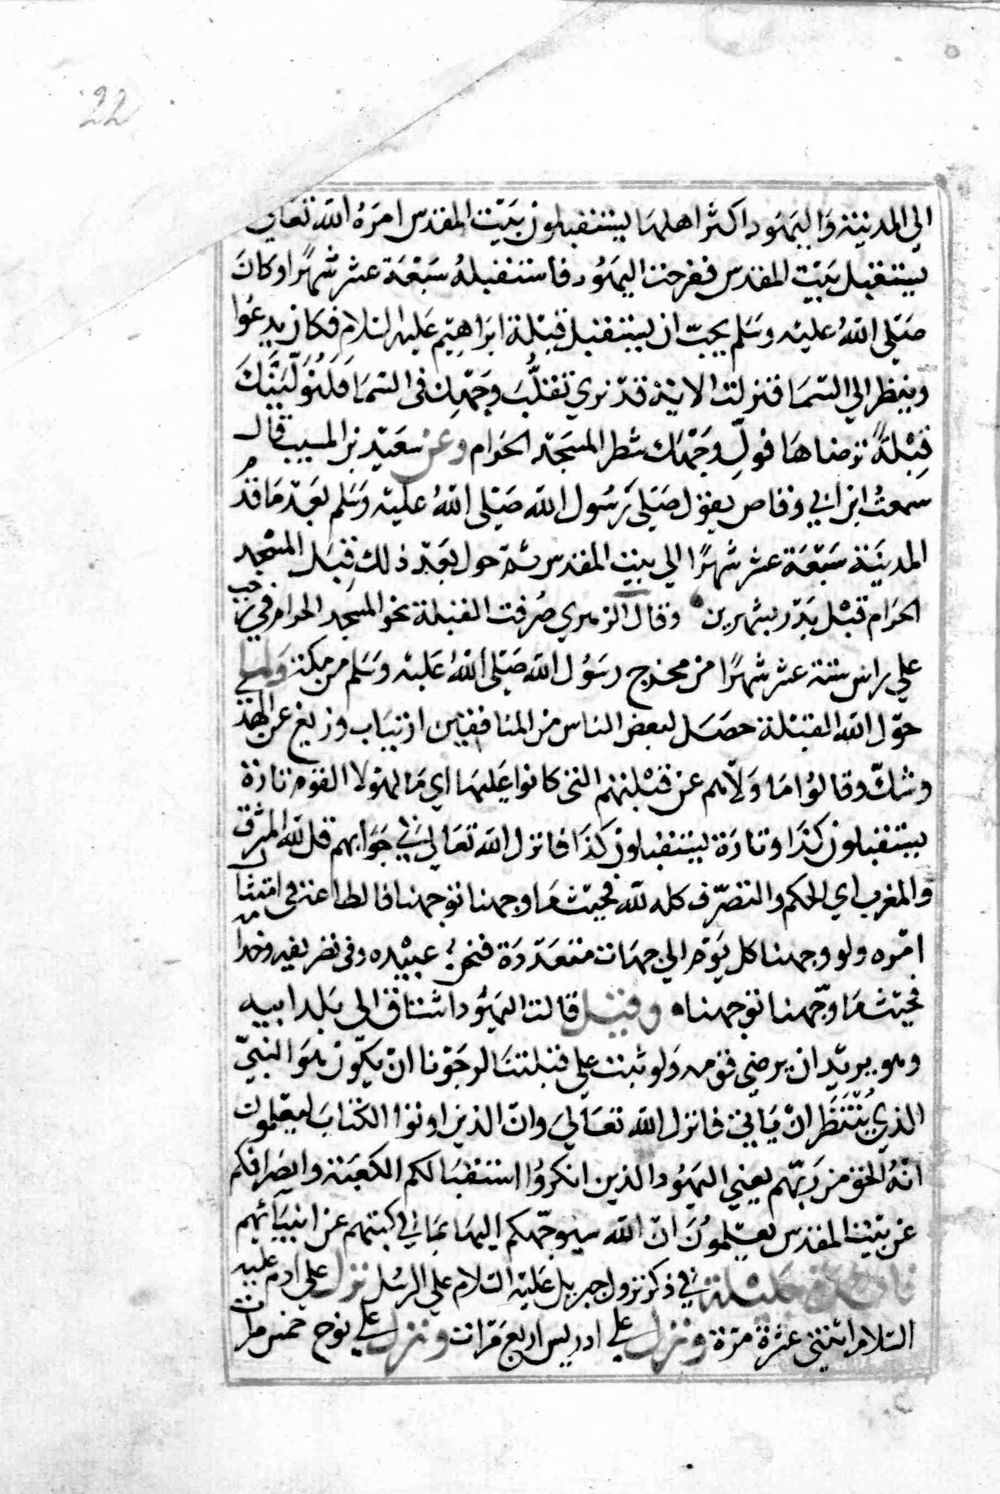 22
الى المدينة واليهود اكثر اهلها يستقبلون بيت المقدس امره الله تعالى
يستقبل بيت المقدس ففرحت اليهود فاستقبله سبعة عشر شهرا وكان
صلى الله عليه وسلم يحب ان يستقبل قبلة ابراهيم عليه السلام فكان يدعوا
وينظر الى السما فنزلت الاية قد نرى تقلب وجهك فى السما فلنولينك
قبلة ترضاها فول وجهك شطر المسجد الحرام وعن سعيد بن المسيب قال
سمعت ابن ابي وقاص يقول صلى رسول الله صلى الله عليه وسلم بعد ما قدم
المدينة سبعة عشر شهرا الى بيت المقدس ثم حول بعد ذلك قبل المسجد
الحرام قبل بدر بشهرين وقال الزهري صرفت القبلة نحو المسجد الحرام في رجب
على راس ستة عشر شهرا من مخرج رسول الله صلى الله عليه وسلم من مكة ولما
حول الله القبلة حصل لبعض الناس من المنافقين ارتياب وزيغ عن الهدى
وشك وقالوا ما ولاهم عن قبلتهم التى كانوا عليها اي ما لهولا القوم تارة
يستقبلون كذا وتارة يستقبلون كذا فانزل الله تعالى في جوابهم قل لله المشرق
والمغرب اي الحكم والتصرف كله لله فحيث ما وجهنا توجهنا فالطاعة فى امتثال
امره ولو وجهنا كل يوم الى جهات متعددة فنحن عبيده وفى تصريفه وخدامه
فحيث ما وجهنا توجهناه وقيل قالت اليهود اشتاق الى بلد ابيه
وهو يريد ان يرضى قومه ولو ثبت على قبلتنا لرجونا ان يكون هو النبي
الذي ينتظر ان ياتي فانزل الله تعالى وان الذين اوتوا الكتاب ليعلمون
انه الحق من ربهم يعني اليهود الذين انكروا استقبالكم الكعبة وانصرافكم
عن بيت المقدس يعلمون ان الله سيوجهكم اليها بما في كتبهم عن انبيائهم
جليلة في ذكر نزول جبريل عليه السلام على الرسل نزل على ادم عليه
السلام اثنتى عشرة مرة ونزل على ادريس اربع مرات ونزل على نوح خمسين مرة